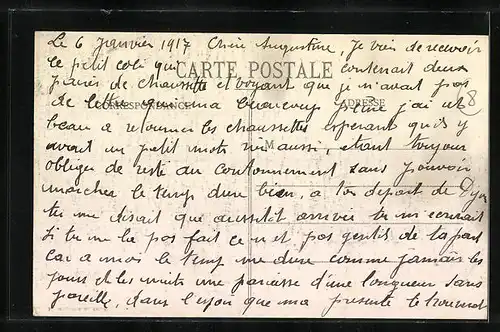 Le 6 Janvier 1917 Chère Augustine, Je vien de recevoir
le petit coli qui contenait deux
CARTE POSTALE
paires de chaussette et voyant que je n'avait pas
de lettre que ma beaucoup peine j'ai ut
CORRESPONDANCE
ADRESSE
8
beau a retourner les chaussettes esperant qu'il y
aurait un petit mots rien aussi, etant toujour
M
obliger de resté au cantonnement sans pouvoir
marcher le temp dure bien, a ton depart de Dijon
tu me disait que aussitôt arriver tu m'ecrirait
Si tu ne la pas fait ce n'et pas gentil de ta part
Car a moi le temp me dure comme jamais les
jours et les nuits me paraisse d'une longueur sans
pareille, dans l'espoir que ma presente te trouverat